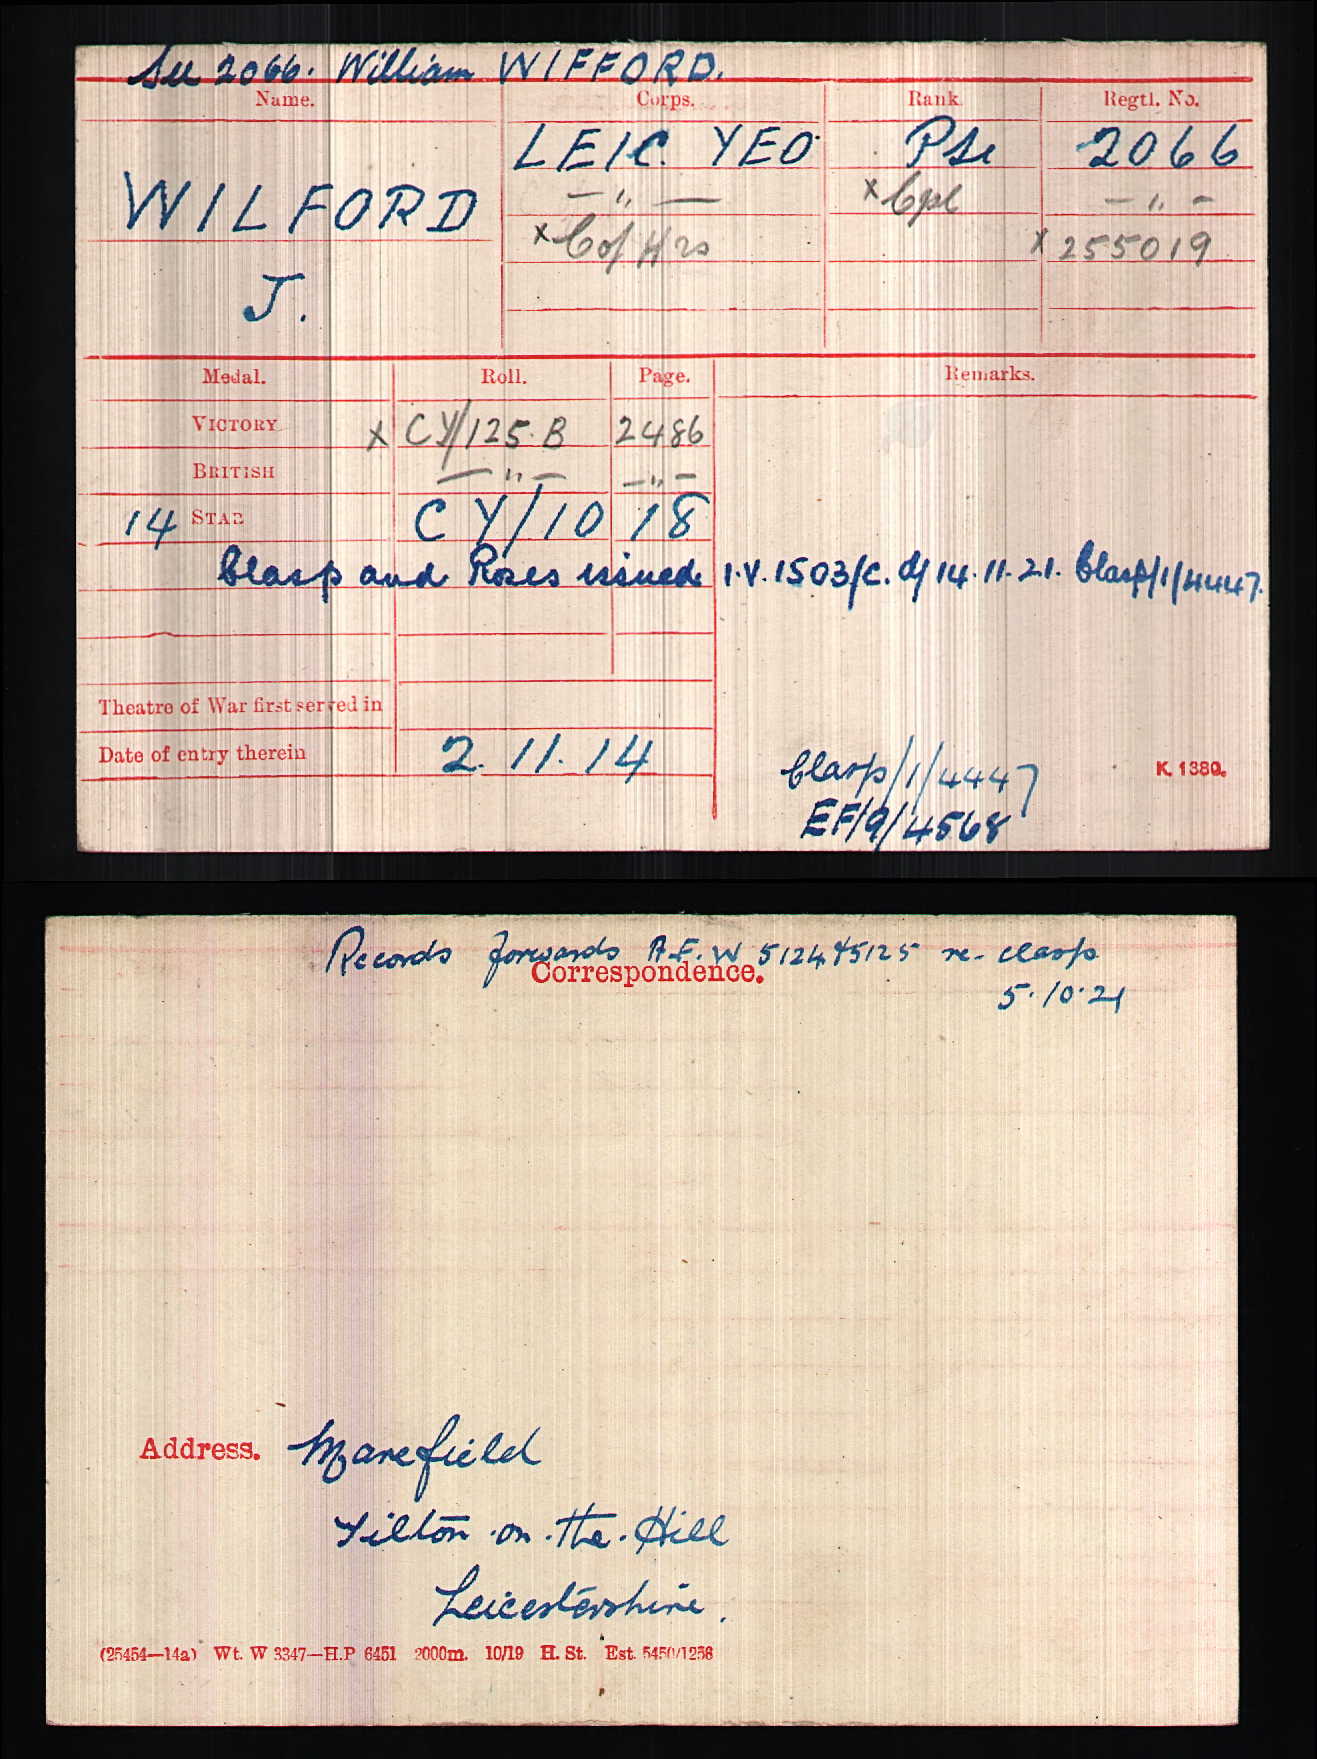 See 2066. William WIFFORD.
Name. Corps. Rank. Regtl. No.
LEIC. YEO. Pte 2066
WILFORD — " — x Cpl — " —
x C of Hrs x 255019
J.
Medal. Roll. Page. Remarks.
VICTORY x CY/125.B 2486
BRITISH — " — — " —
14 STAR CY/10 18
Clasp and Roses issued I.V. 1503/C. d/ 14.11.21. Clasp/1/4447.
Theatre of War first served in
Date of entry therein 2.11.14
Clasp/1/4447
K. 1380.
EF/9/4568
Records forwards A.F.W 5124 & 5125 re- clasp
Correspondence.
5.10.21
Address. Marefield
Tilton-on-the-Hill
Leicestershire.
(25454—14a) Wt. W 3347—H.P 6451 2000m. 10/19 H. St. Est. 5450/1256